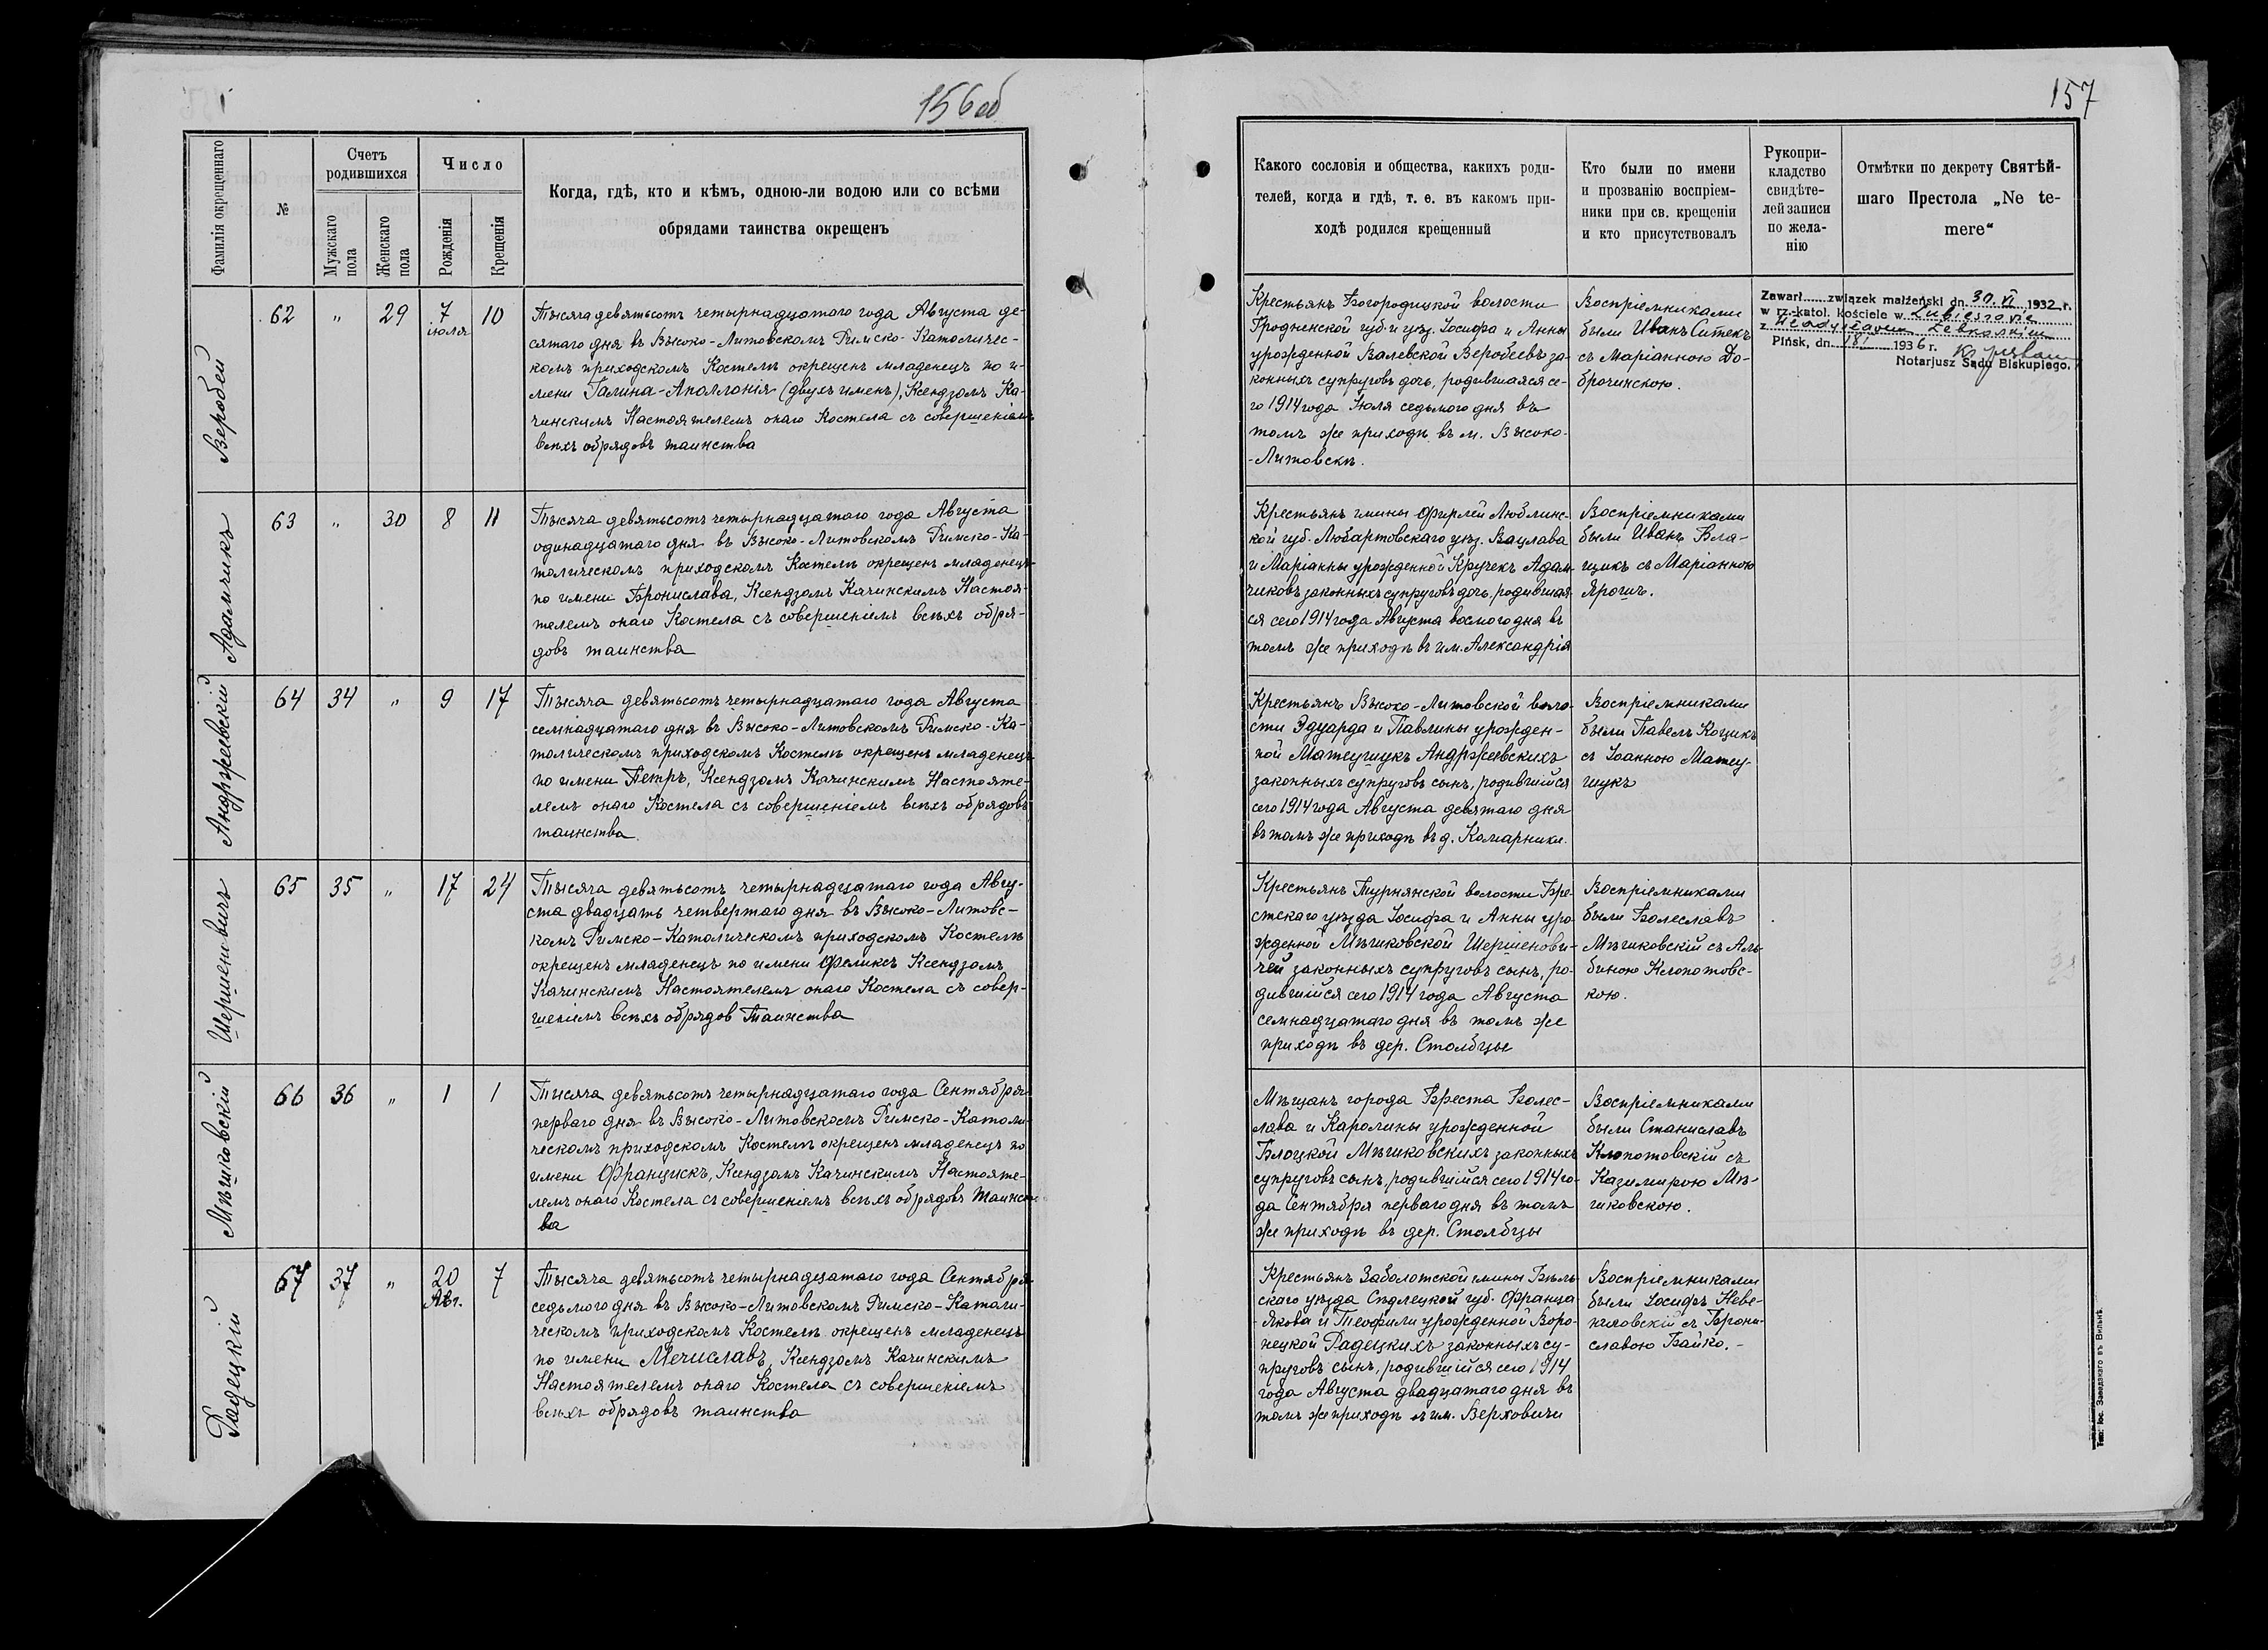 156об
Фамилія окрещеннаго
№
Счетъ родившихся
Мужскаго пола
Женскаго пола
Число
Рожденія
Крещенія
Когда, гдѣ, кто и кѣмъ, одною-ли водою или со всѣми
обрядами таинства окрещенъ
Веробей
62 " 29 7 іюля 10
Тысяча девятьсотъ четырнадцатаго года Августа де-
сятаго дня въ Высоко-Литовскомъ Римско-Католичес-
комъ приходскомъ Костелѣ окрещенъ младенецъ по и-
мени Галина-Аполлонія (двухъ именъ), Ксендзомъ Ка-
чинскимъ Настоятелемъ онаго Костела съ совершеніемъ
всѣхъ обрядовъ таинства
Адамчикъ
63 " 30 8 11
Тысяча девятьсотъ четырнадцатаго года Августа
одинадцатаго дня въ Высоко-Литовскомъ Римско-Ка-
толическомъ приходскомъ Костелѣ окрещенъ младенецъ
по имени Бронислава, Ксендзомъ Качинскимъ Настоя-
телемъ онаго Костела съ совершеніемъ всѣхъ обря-
довъ таинства
Андржеевскій
64 34 " 9 17
Тысяча девятьсотъ четырнадцатаго года Августа
семнадцатаго дня въ Высоко-Литовскомъ Римско-Ка-
толическомъ приходскомъ Костелѣ окрещенъ младенецъ
по имени Петръ, Ксендзомъ Качинскимъ Настояте-
лемъ онаго Костела съ совершеніемъ всѣхъ обрядовъ
таинства.
Шершеновичъ
65 35 " 17 24
Тысяча девятьсотъ четырнадцатаго года Авгу-
ста двадцать четвертаго дня въ Высоко-Литовс-
комъ Римско-Католическомъ приходскомъ Костелѣ
окрещенъ младенецъ по имени Феликсъ Ксендзомъ
Качинскимъ Настоятелемъ онаго Костела съ совер-
шеніемъ всѣхъ обрядов Таинства
Мѣшковскій
66 36 " 1 1
Тисяча девятьсотъ четырнадцатаго года Сентября
перваго дня въ Высоко-Литовскомъ Римско-Католи-
ческомъ приходскомъ Костелѣ окрещенъ младенецъ по
имени Францискъ, Ксендзомъ Качинскимъ Настояте-
лемъ онаго Костела съ совершеніемъ всѣхъ обрядовъ Таинст-
ва
Радецкій
67 37 " 20 Авг. 7
Тысяча девятьсотъ четырнадцатаго года Сентября
седьмого дня въ Высоко-Литовскомъ Римско-Католи-
ческомъ приходскомъ Костелѣ окрещенъ младенецъ
по имени Мечиславъ, Ксендзомъ Качинскимъ
Настоятелемъ онаго Костела съ совершеніемъ
всѣхъ обрядовъ таинства
157
Какого сословія и общества, какихъ роди-
телей, когда и гдѣ, т. е. въ какомъ при-
ходѣ родился крещенный
Кто были по имени
и прозванію воспріем-
ники при св. крещеніи
и кто присутствовалъ
Рукопри-
кладство
свидѣте-
лей записи
по жела-
нію
Отмѣтки по декрету Святѣй-
шаго Престола „Ne te-
mere“
Крестьянъ Богородицкой волости
Гродненской губ. и уѣз. Іосифа и Анны
урожденной Валевской Веробеевъ за-
конныхъ супруговъ дочь, родившаяся се-
го 1914 года Іюля седьмого дня въ
томъ же приходѣ въ м. Высоко-
-Литовскѣ.
Воспріемниками
были Иванъ Ситекъ
съ Маріанною До-
брочинскою.
Zawarł...... związek małżeński dn. 30. VI 1932 r.
w rz.-katol. kościele w Lubieszowie
z Władysławem
Pińsk, dn. 18/I 1936 r.
Notarjusz Sądu Biskupiego.
Крестьянъ гмины Фирлей Люблинс-
кой губ. Любартовскаго уѣз. Вацлава
и Маріанны урожденной Кручекъ Адам-
чиковъ законныхъ супруговъ дочь, родившая-
ся сего 1914 года Августа восмого дня въ
томъ же приходѣ въ им. Александрія
Воспріемниками
были Иванъ Вла-
щикъ съ Маріанною
Ярошъ.
Крестьянъ Высоко-Литовской воло-
сти Эдуарда и Павлины урожден-
ной Матеушукъ Андржеевскихъ
законныхъ супруговъ сынъ, родившійся
сего 1914 года Августа девятаго дня
въ томъ же приходѣ въ д. Комарники.
Воспріемниками
были Павелъ Коцикъ
съ Іоанною Матеу-
шукъ
Крестьянъ Турнянской волости Бре-
стскаго уѣзда Іосифа и Анны уро-
жденной Мѣшковской Шершенови-
чей законныхъ супруговъ сынъ, ро-
дившійся сего 1914 года Августа
семнадцатаго дня въ томъ же
приходѣ въ дер. Столбцы
Воспріемниками
были Болеславъ
Мѣшковскій съ Аль-
биною Клопотовс-
кою.
Мѣщанъ города Бреста Болес-
лава и Каролины урожденной
Блоцкой Мѣшковскихъ законныхъ
супруговъ сынъ, родившійся сего 1914 го-
да Сентября перваго дня въ томъ
же приходѣ въ дер. Столбцы
Воспріемниками
были Станиславъ
Клопотовскій съ
Казимирою Мѣ-
шковскою.
Крестьянъ Заболотской гмины Бѣль-
скаго уѣзда Сѣдлецкой губ. Франца
-Якова и Теофили урожденной Воро-
нецкой Радецкихъ законныхъ су-
пруговъ сынъ, родившійся сего 1914
года Августа двадцатаго дня въ
томъ же приходѣ въ им. Верховичи
Воспріемниками
были Іосифъ Неве-
с Брони-
славою Байко.-
Тип. Іос. Завадзкаго въ Вильнѣ.